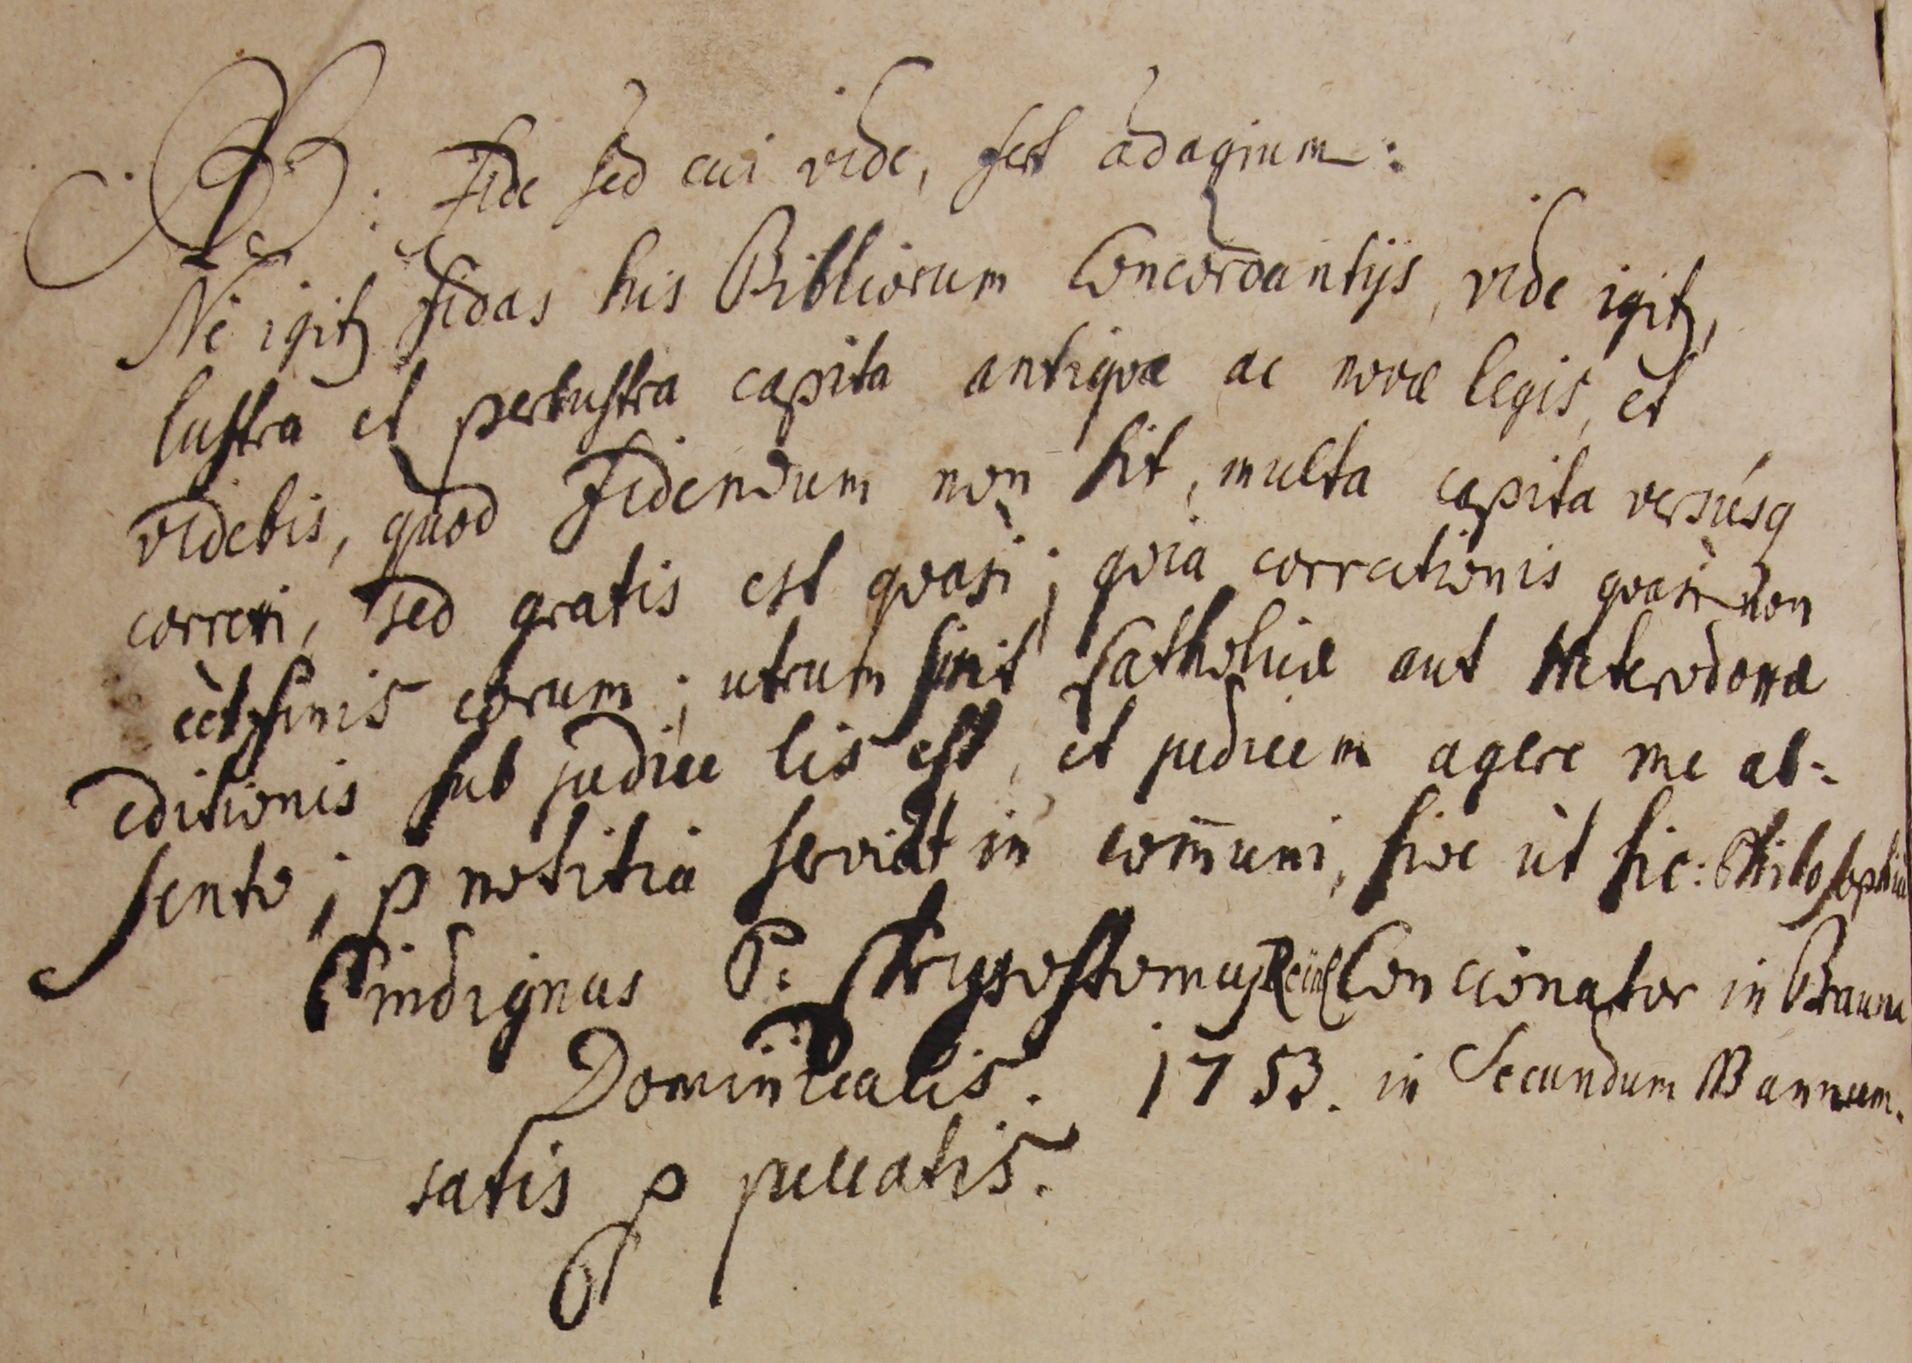 NB: Fide sed cui vide, fert adagium:
Ne igitr fidas his Bibliorum Concordantijs, vide igitr,
lustra et perlustra capita antiquæ ac novæ legis, et
videbis, quod fidendum non sit, multa capita versúsq
correxi, sed gratis est quasi; quia correctionis quasi non
est finis eorum; utrum sint Catholicæ aut Heterodoxæ
editionis sub judice lis est, et judicem agere me ab-
sento; p notitia serviat in com̄uni, sive ùt sic:
P indignus P. Chrysostomus Concionator in
Dominicalis. 1753. in Secundum Bannum.
satis p peccatis.